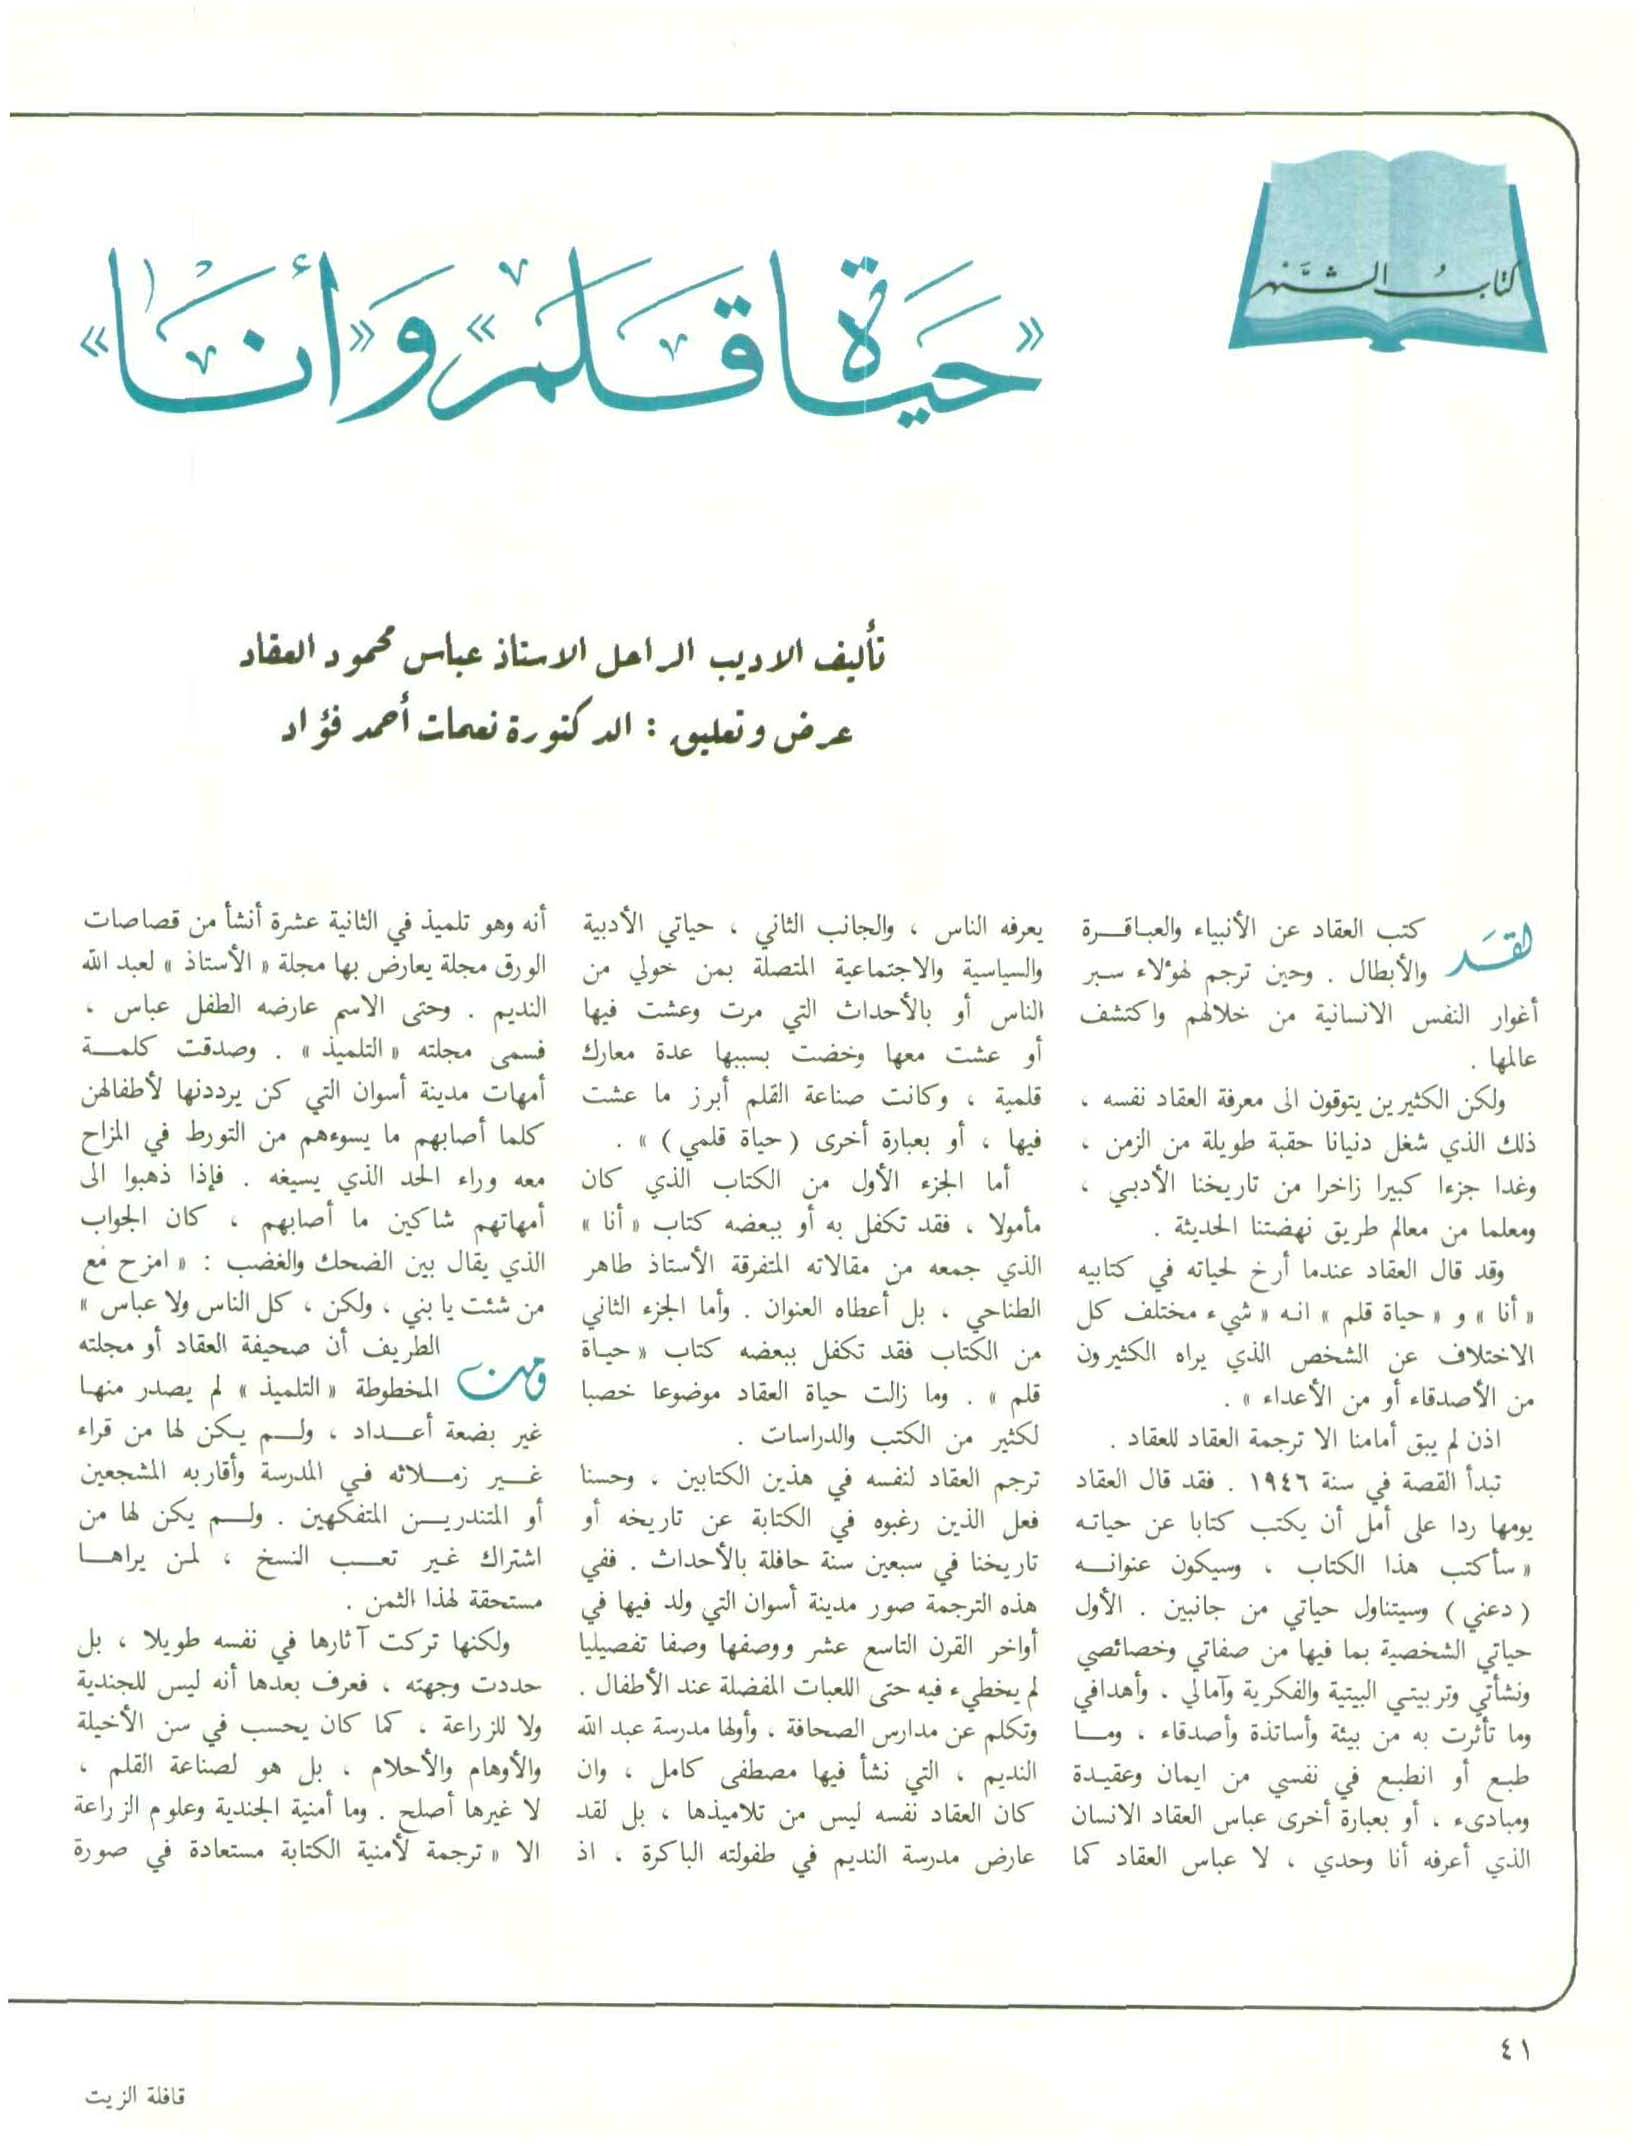 كتاب الشهر
«حياة قلم» و «أنا»
تأليف الاديب الراحل الاستاذ عباس محمود العقاد
عرض وتعليق : الدكتورة نعمات أحمد فؤاد
لقد كتب العقاد عن الأنبياء والعباقرة
والأبطال . وحين ترجم لهؤلاء سبر
أغوار النفس الانسانية من خلالهم واكتشف
عالمها .
ولكن الكثيرين يتوقون الى معرفة العقاد نفسه ،
ذلك الذي شغل دنيانا حقبة طويلة من الزمن ،
وغدا جزءا كبيرا زاخرا من تاريخنا الأدبي ،
ومعلما من معالم طريق نهضتنا الحديثة .
وقد قال العقاد عندما أرخ لحياته في كتابيه
« أنا » و « حياة قلم » انه « شيء مختلف كل
الاختلاف عن الشخص الذي يراه الكثيرون
من الأصدقاء أو من الأعداء » .
اذن لم يبق أمامنا الا ترجمة العقاد للعقاد .
تبدأ القصة في سنة ١٩٤٦ . فقد قال العقاد
يومها ردا على أمل أن يكتب كتابا عن حياته
« سأكتب هذا الكتاب ، وسيكون عنوانه
( دعني ) وسيتناول حياتي من جانبين . الأول
حياتي الشخصية بما فيها من صفاتي وخصائصي
ونشأتي وتربيتي البيتية والفكرية وآمالي ، وأهدافي
وما تأثرت به من بيئة وأساتذة وأصدقاء ، وما
طبع أو انطبع في نفسي من ايمان وعقيدة
ومبادىء ، أو بعبارة أخرى عباس العقاد الانسان
الذي أعرفه أنا وحدي ، لا عباس العقاد كما
يعرفه الناس ، والجانب الثاني ، حياتي الأدبية
والسياسية والاجتماعية المتصلة بمن حولي من
الناس أو بالأحداث التي مرت وعشت فيها
أو عشت معها وخضت بسببها عدة معارك
قلمية ، وكانت صناعة القلم أبرز ما عشت
فيها ، أو بعبارة أخرى ( حياة قلمي ) » .
أما الجزء الأول من الكتاب الذي كان
مأمولا ، فقد تكفل به أو ببعضه كتاب « أنا »
الذي جمعه من مقالاته المتفرقة الأستاذ طاهر
الطناحي ، بل أعطاه العنوان . وأما الجزء الثاني
من الكتاب فقد تكفل ببعضه كتاب « حياة
قلم » . وما زالت حياة العقاد موضوعا خصبا
لكثير من الكتب والدراسات .
ترجم العقاد لنفسه في هذين الكتابين ، وحسنا
فعل الذين رغبوه في الكتابة عن تاريخه أو
تاريخنا في سبعين سنة حافلة بالأحداث . ففي
هذه الترجمة صور مدينة أسوان التي ولد فيها في
أواخر القرن التاسع عشر ووصفها وصفا تفصيليا
لم يخطيء فيه حتى اللعبات المفضلة عند الأطفال .
وتكلم عن مدارس الصحافة ، وأولها مدرسة عبد الله
النديم ، التي نشأ فيها مصطفى كامل ، وان
كان العقاد نفسه ليس من تلاميذها ، بل لقد
عارض مدرسة النديم في طفولته الباكرة ، اذ
أنه وهو تلميذ في الثانية عشرة أنشأ من قصاصات
الورق مجلة يعارض بها مجلة « الأستاذ » لعبد الله
النديم . وحتى الاسم عارضه الطفل عباس ،
فسمى مجلته « التلميذ » . وصدقت كلمة
أمهات مدينة أسوان التي كن يرددنها لأطفالهن
كلما أصابهم ما يسوءهم من التورط في المزاح
معه وراء الحد الذي يسيغه . فإذا ذهبوا الى
أمهاتهم شاكين ما أصابهم ، كان الجواب
الذي يقال بين الضحك والغضب : « امزح مع
من شئت يا بني ، ولكن ، كل الناس ولا عباس »
ومن الطريف أن صحيفة العقاد أو مجلته
المخطوطة « التلميذ » لم يصدر منها
غير بضعة أعداد ، ولم يكن لها من قراء
غير زملائه في المدرسة وأقاربه المشجعين
أو المتندرين المتفكهين . ولم يكن لها من
اشتراك غير تعب النسخ ، لمن يراها
مستحقة لهذا الثمن .
ولكنها تركت آثارها في نفسه طويلا ، بل
حددت وجهته ، فعرف بعدها أنه ليس للجندية
ولا للزراعة ، كما كان يحسب في سن الأخيلة
والأوهام والأحلام ، بل هو لصناعة القلم ،
لا غيرها أصلح . وما أمنية الجندية وعلوم الزراعة
الا « ترجمة لأمنية الكتابة مستعادة في صورة
٤١
قافلة الزيت